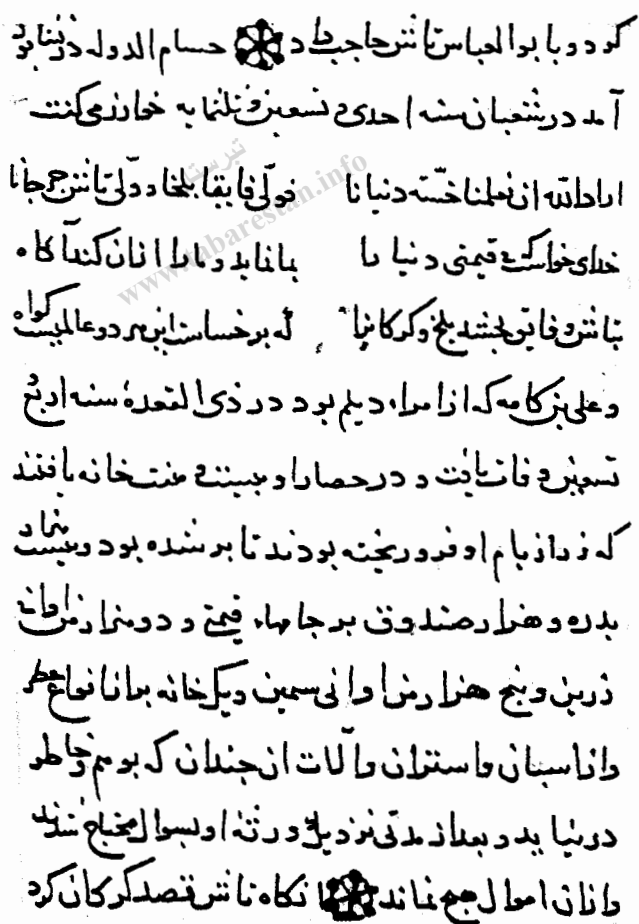 کود و با بو العباس تاش حاجب داد حسام الدوله در نیشابور
آمد در شعبان سنه احدی و تسعین و ثلثمایه خوارزمی گفت
اراد الله ان یعلمنا خسّة دنیانا فولّی فایقا بلخا و ولّی تاش جرجانا
خدای خواست که قیمتی دنیا را بما نماید و ما را ازان کند آگاه
بتاش و فایق بخشد بلخ و گرگان را که بر خساست این هر دو عالمیست گواه
و علی بن کامه که از امراء دیلم بود در ذی القعده سنه اربع
تسعین وفات یافت و در حصار او بیست و هفت خانه یافتند
که زر از بام او فرو ریخته بودند تا پر شده بود و بیست
بدره و هزار صندوق پر جامهاء قیمتی و دو هزار من اوانی
زرین و پنج هزار من اوانی سیمین و یک خانه پر از انواع عطر
و از اسبان و استران و آلات ان چندان که بوهم و خاطر
در نیاید و بعد از مدتی نزدیک ورثه او بسوال محتاج شدند
و ازان اموال هیچ نماند انکاه تاش قصد گرگان کرد
www.tabarestan.info
تبرستان